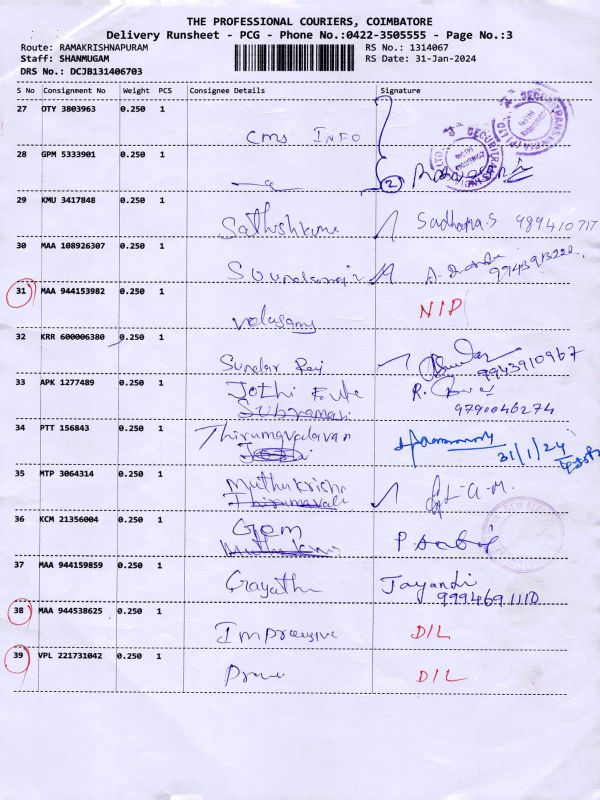 THE PROFESSIONAL COURIERS, COIMBATORE
Delivery Runsheet - PCG - Phone No.:0422-3505555 - Page No.:3
Route: RAMAKRISHNAPURAM
RS No.: 1314067
Staff: SHANMUGAM
RS Date: 31-Jan-2024
DRS No.: DCJB131406703
S No Consignment No Weight PCS Consignee Details Signature
27 OTY 3803963 0.250 1
CMS INFO
28 GPM 5333901 0.250 1
2
29 KMU 3417848 0.250 1
Sathishkume Sadhana.S 989410717
30 MAA 108926307 0.250 1
31 MAA 944153982 0.250 1
Velasamy NIP
32 KRR 600006380 0.250 1
Sundar Raj 9943910967
33 APK 1277489 0.250 1
Jothi R.
Subramani 9790046274
34 PTT 156843 0.250 1
Thirumavalavan 31/1/24
35 MTP 3064314 0.250 1
Muthukrishn
Thirumavali
36 KCM 21356004 0.250 1
Gem
37 MAA 944159859 0.250 1
Gayathri Jayandi
9994691110
38 MAA 944538625 0.250 1
Impressive D/L
39 VPL 221731042 0.250 1
D/L